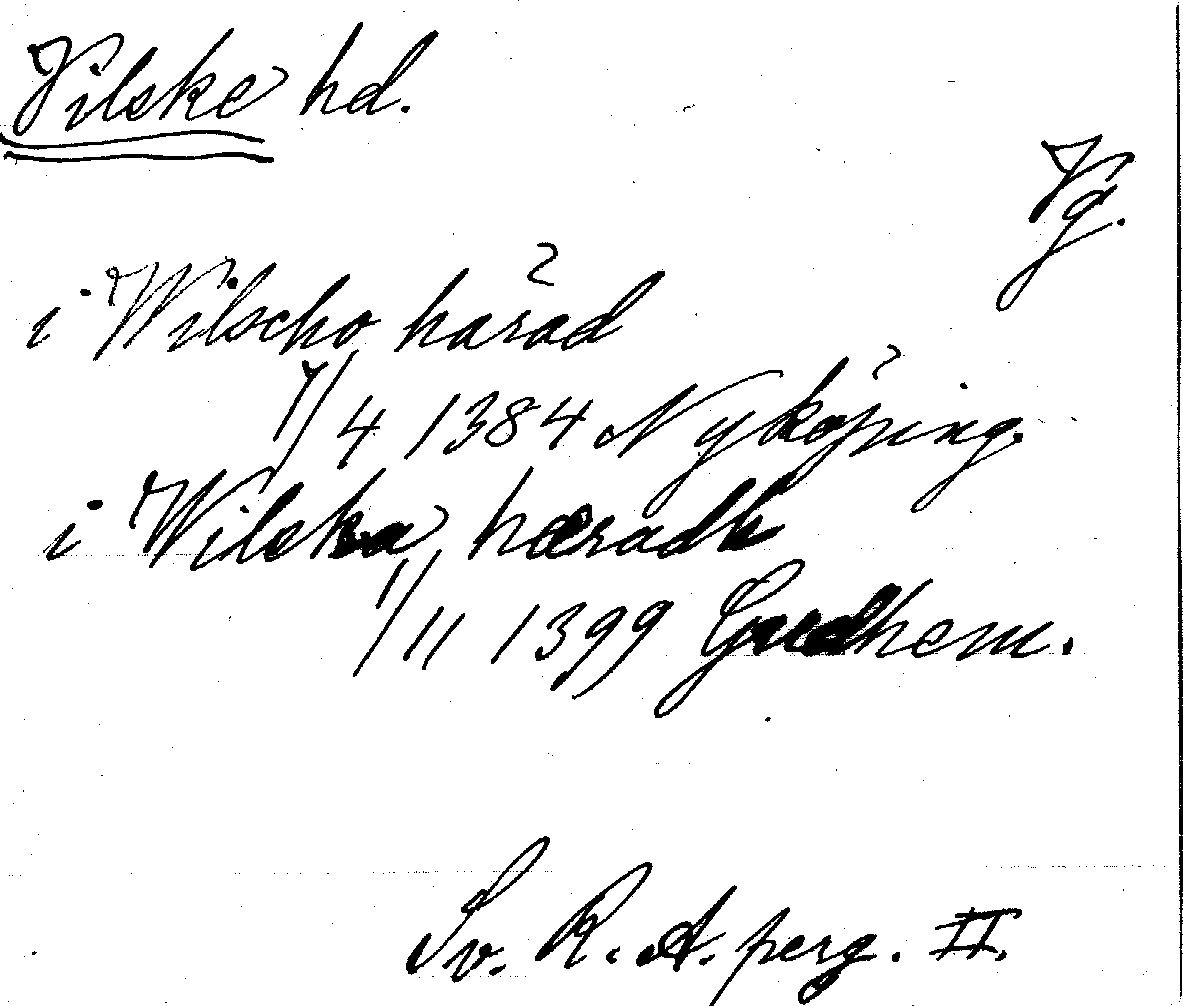 Vilske hd.
Vg.
i Wilscho härad
7/4 1384 Nyköping.
i Wilska hæradh
1/11 1399 Gudhem.
Sv. R. A. perg. II.